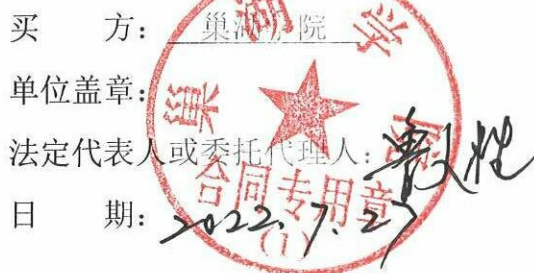 买 方：巢湖学院
单位盖章：
法定代表人或委托代理人：
日 期：2022.7.27
巢湖学院
合同专用章
(1)